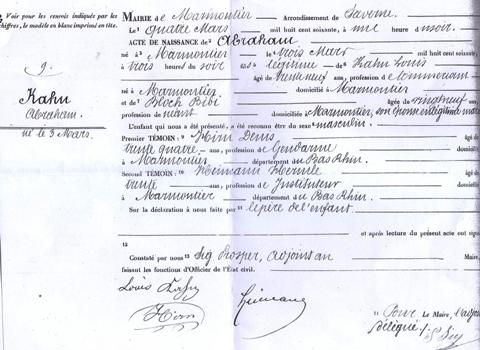 Voir pour les renvois indiqués par les
chiffres, le modèle en blanc imprimé en tête.
9.
Kahn
Abraham.
né le 3 Mars.
MAIRIE de Marmoutier Arrondissement de Saverne
Le quatre Mars mil huit cent soixante, à une heure du soir.
ACTE DE NAISSANCE de Abraham
né à Marmoutier le trois Mars mil huit cent soixante,
à trois heures du soir fils légitime de Kahn Louis
âgé de trente neuf ans, profession de Commerçant
né à Marmoutier domicilié à Marmoutier
et de Bloch Bibi âgée de vingt neuf ans,
profession de néant domiciliée à Marmoutier, son épouse en légitime mariage
L'enfant qui nous a été présenté, a été reconnu être du sexe masculin.
Premier TÉMOIN : Hirn Denis âgé de
trente quatre ans, profession de Gendarme domicilié
à Marmoutier département du Bas Rhin.
Second TÉMOIN : Heimann âgé de
trente ans, profession de Instituteur domicilié
à Marmoutier département du Bas Rhin.
Sur la déclaration à nous faite par le père de l'enfant.
et après lecture du présent acte ont signé
12
Constaté par nous Sig Prosper, adjoint au Maire,
faisant les fonctions d'Officier de l'État civil.
Louis Kahn
Hirn
Heimann
Pour Le Maire, l'adjoint
délégué
Sig